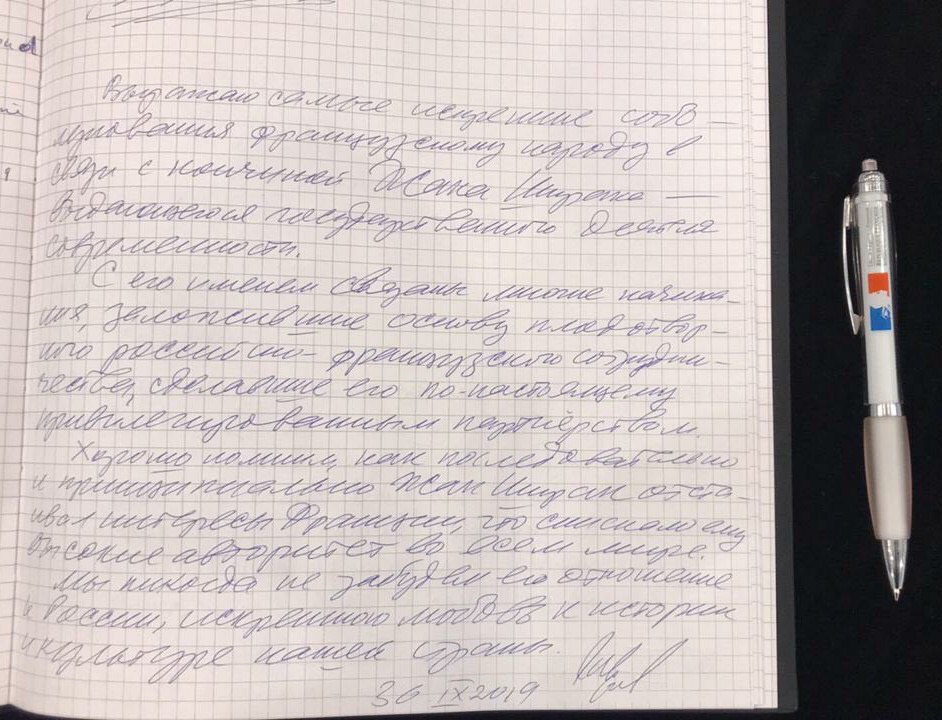 Выражаю самые искренние собо-
лезнования французскому народу в
связи с кончиной Жака Ширака —
выдающегося государственного деятеля
современности.
С его именем связаны многие начина-
ния, заложившие основу плодотвор-
ного российско-французского сотрудни-
чества, сделавшие его по-настоящему
привилегированным партнёрством.
Хорошо помним, как последовательно
и принципиально Жак Ширак отста-
ивал интересы Франции, что снискало ему
высокий авторитет во всем мире.
Мы никогда не забудем его отношение
к России, искреннюю любовь к истории
и культуре нашей страны.
30 IX 2019